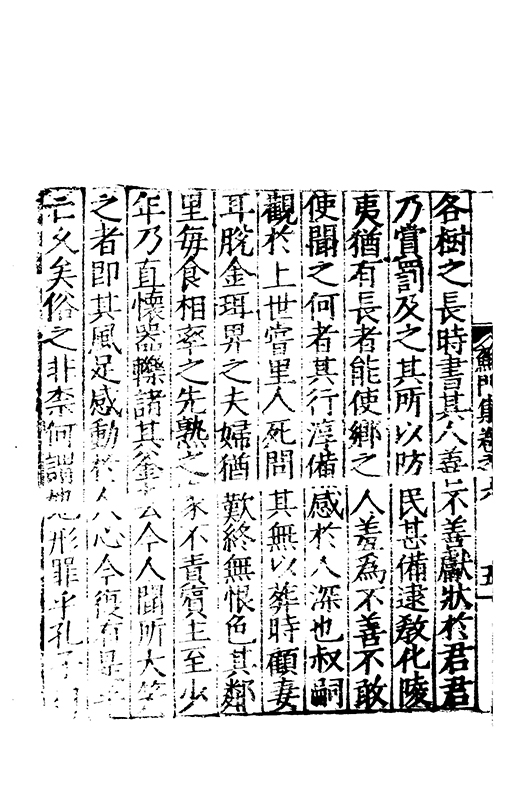 門集卷之六
各樹之長時書其人善不善獻狀於君君
乃賞罰及之其所以防民甚備逮教化陵
夷猶有長者能使鄉之人羞為不善不敢
使聞之何者其行淳備感於人深也叔嗣
觀於上世嘗里人死問其無以葬時顧妻
耳脫金珥畀之夫婦猶歎終無恨色其鄰
里每食相率之先熟之家不責賓主至少
年乃直懷器轢諸其釜云今人聞所大笑
之者即其風足感動於人心今復有是
亡久矣俗之非柰何謂地形罪乎孔子